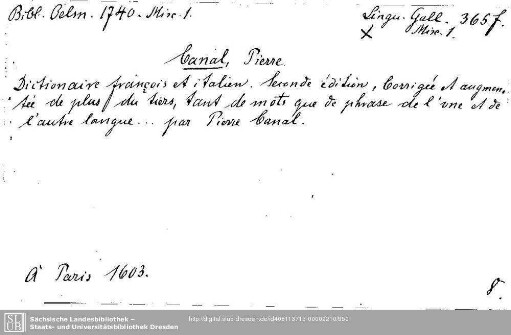 Bibl. Oelm. 1740. Misc. 1.
Lingu. Gall. 365 f.
X Misc. 1.
Canal, Pierre
Dictionaire françois et italien. Seconde édition, Corrigée et augmen-
tée de plus du tiers, tant de mots que de phrase de l'vne et de
l'autre langue... par Pierre Canal.
A Paris 1603.
8.
SLUB
Sächsische Landesbibliothek –
Staats- und Universitätsbibliothek Dresden